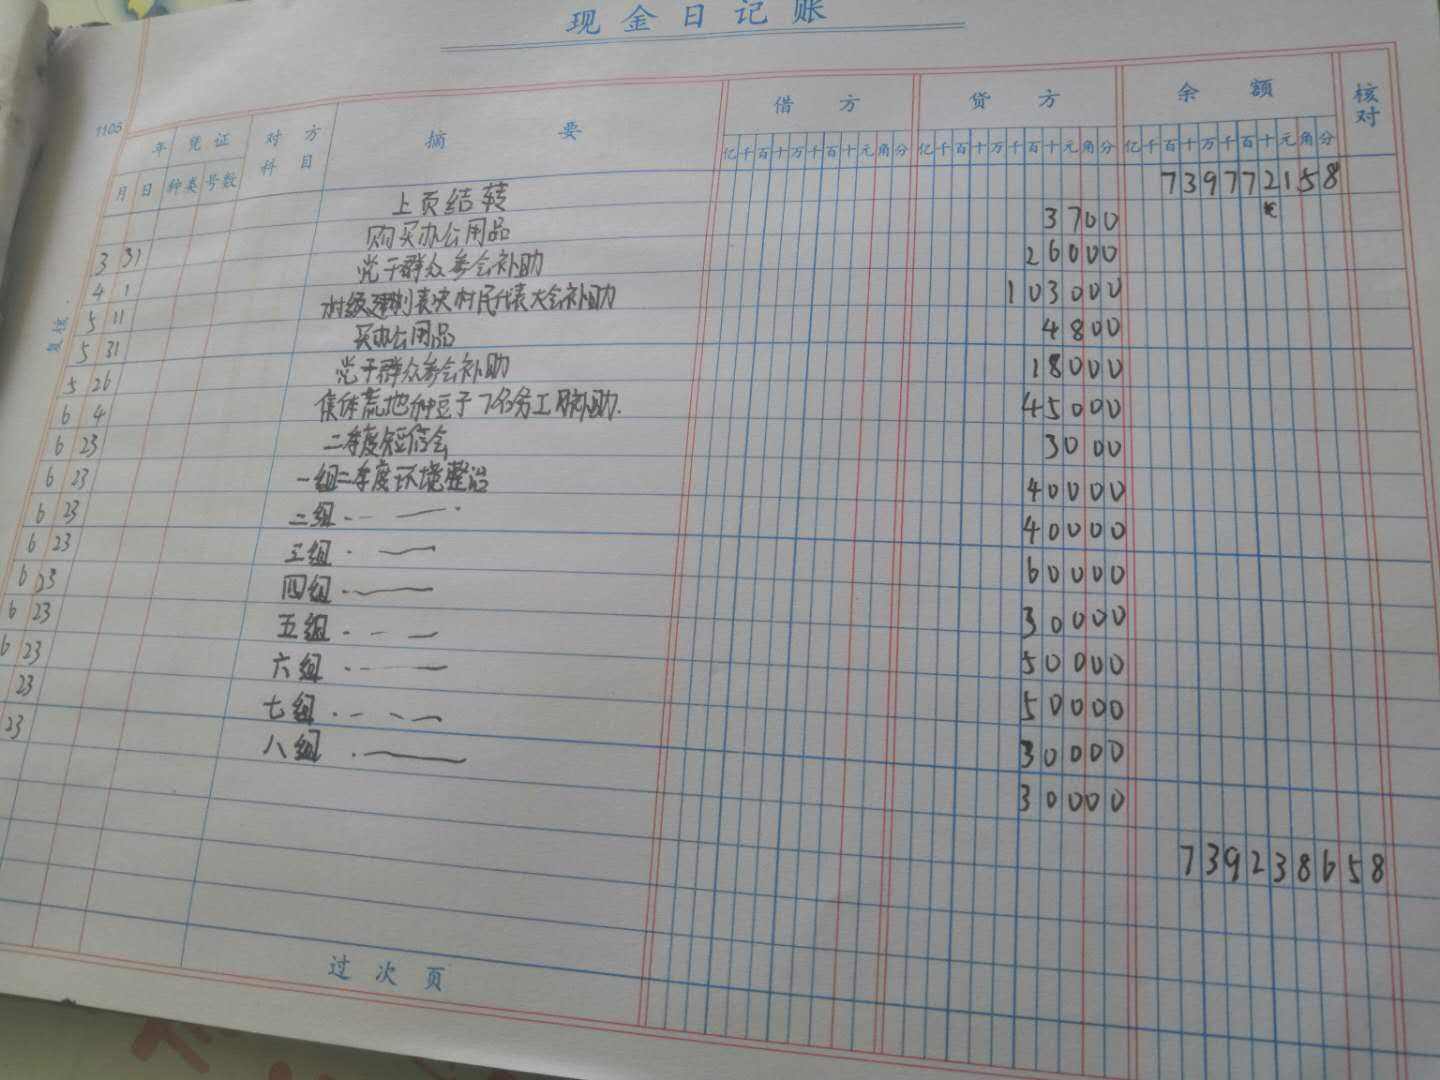 现金日记账
1105 年 凭证 对方科目 摘要 借方 贷方 余额 核对
月 日 种类 号数 亿千百十万千百十元角分 亿千百十万千百十元角分 亿千百十万千百十元角分
上页结转 739772158
3 31 购买办公用品 3700
4 1 党干群众参会补助 26000
5 11 村级建制表决村民代表大会补助 103000
5 31 买办公用品 4800
5 26 党干群众参会补助 18000
6 4 集体荒地种豆子7名务工 补助. 45000
6 23 二季度短信会 3000
6 23 一组二季度环境整治 40000
6 23 二组 40000
6 23 三组 60000
6 23 四组 30000
6 23 五组 50000
6 23 六组 50000
23 七组 30000
23 八组 30000
739238658
过次页
复核